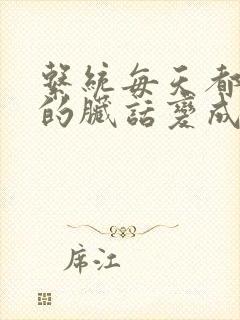 繫統每天都
的臟話變成
席江